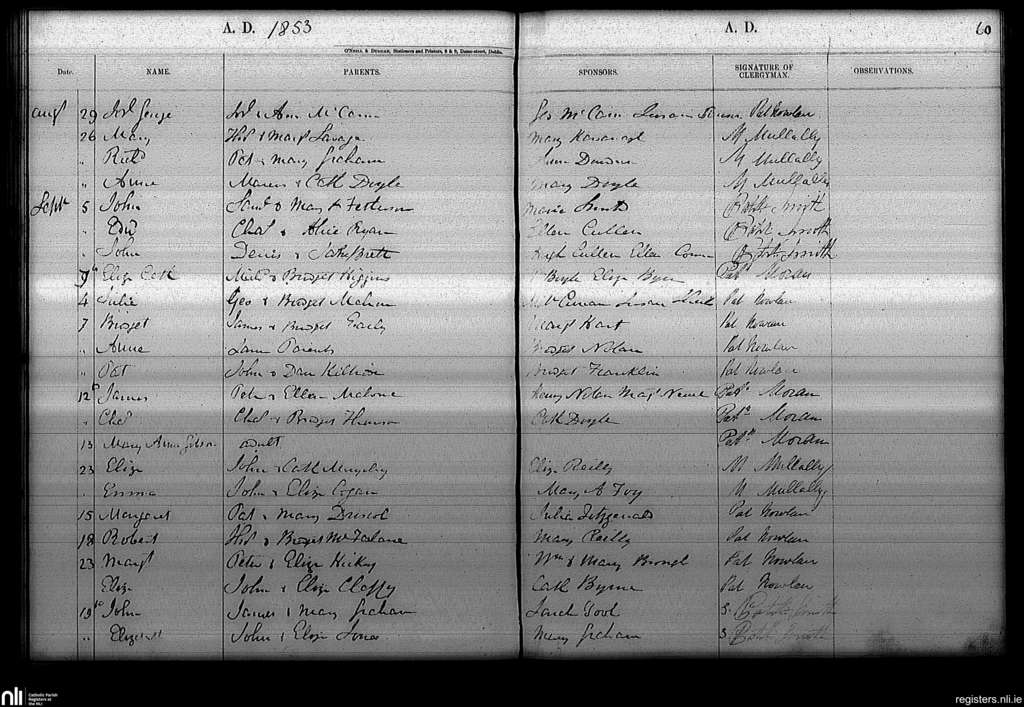 A. D. 1853 A. D. 60
O'Neill & Duggan, Stationers and Printers, 8 & 9, Dame-street, Dublin.
Date. NAME. PARENTS. SPONSORS. SIGNATURE OF CLERGYMAN. OBSERVATIONS.
Augt 29 Josh George Josh & Ann McCann Geo McCann Susan Pat Nowlan
26 Mary Thos & Margt Savage Mary Kavanagh M Mullally
" Richd Pat & Mary Graham Anne M Mullally
" Anne & Cath Doyle Mary Doyle M Mullally
Sept 5 John Saml & Mary A Maria Robt Smith
" Edw Chas & Alice Ryan Ellen Cullen Robt Smith
" John Denis & Hugh Cullen Ellen Robt Smith
9th Eliza Cath Michl & Bridget Higgins Boyle Eliza Byrne Patk Moran
4 Julia Geo & Bridget Mahon Susan Pat Nowlan
7 Bridget James & Bridget Margt Hart Pat Nowlan
" Anne Same Parents Bridget Nolan Pat Nowlan
" Pat John & Bridget Franklin Pat Nowlan
12th James Peter & Ellen Malone Henry Nolan Margt Patk Moran
" Chas Chas & Bridget Cath Doyle Patk Moran
13 Mary Anne adult Patk Moran
23 Eliza John & Cath Murphy Eliza Reilly M Mullally
" Emma John & Eliza Cogan Mary A Foy M Mullally
15 Margaret Pat & Mary Driscol Julia Fitzgerald Pat Nowlan
18 Robert Thos & Bridget McFarlane Mary Reilly Pat Nowlan
23 Margt Peter & Eliza Hickey Wm & Mary Brough Pat Nowlan
Eliza John & Eliza Claffy Cath Byrne Pat Nowlan
19th John James & Mary Graham Sarah Tool S. Robt Smith
" Elizabeth John & Eliza Jones Mary Graham S Robt Smith
nli Catholic Parish
Registers at
the NLI
registers.nli.ie